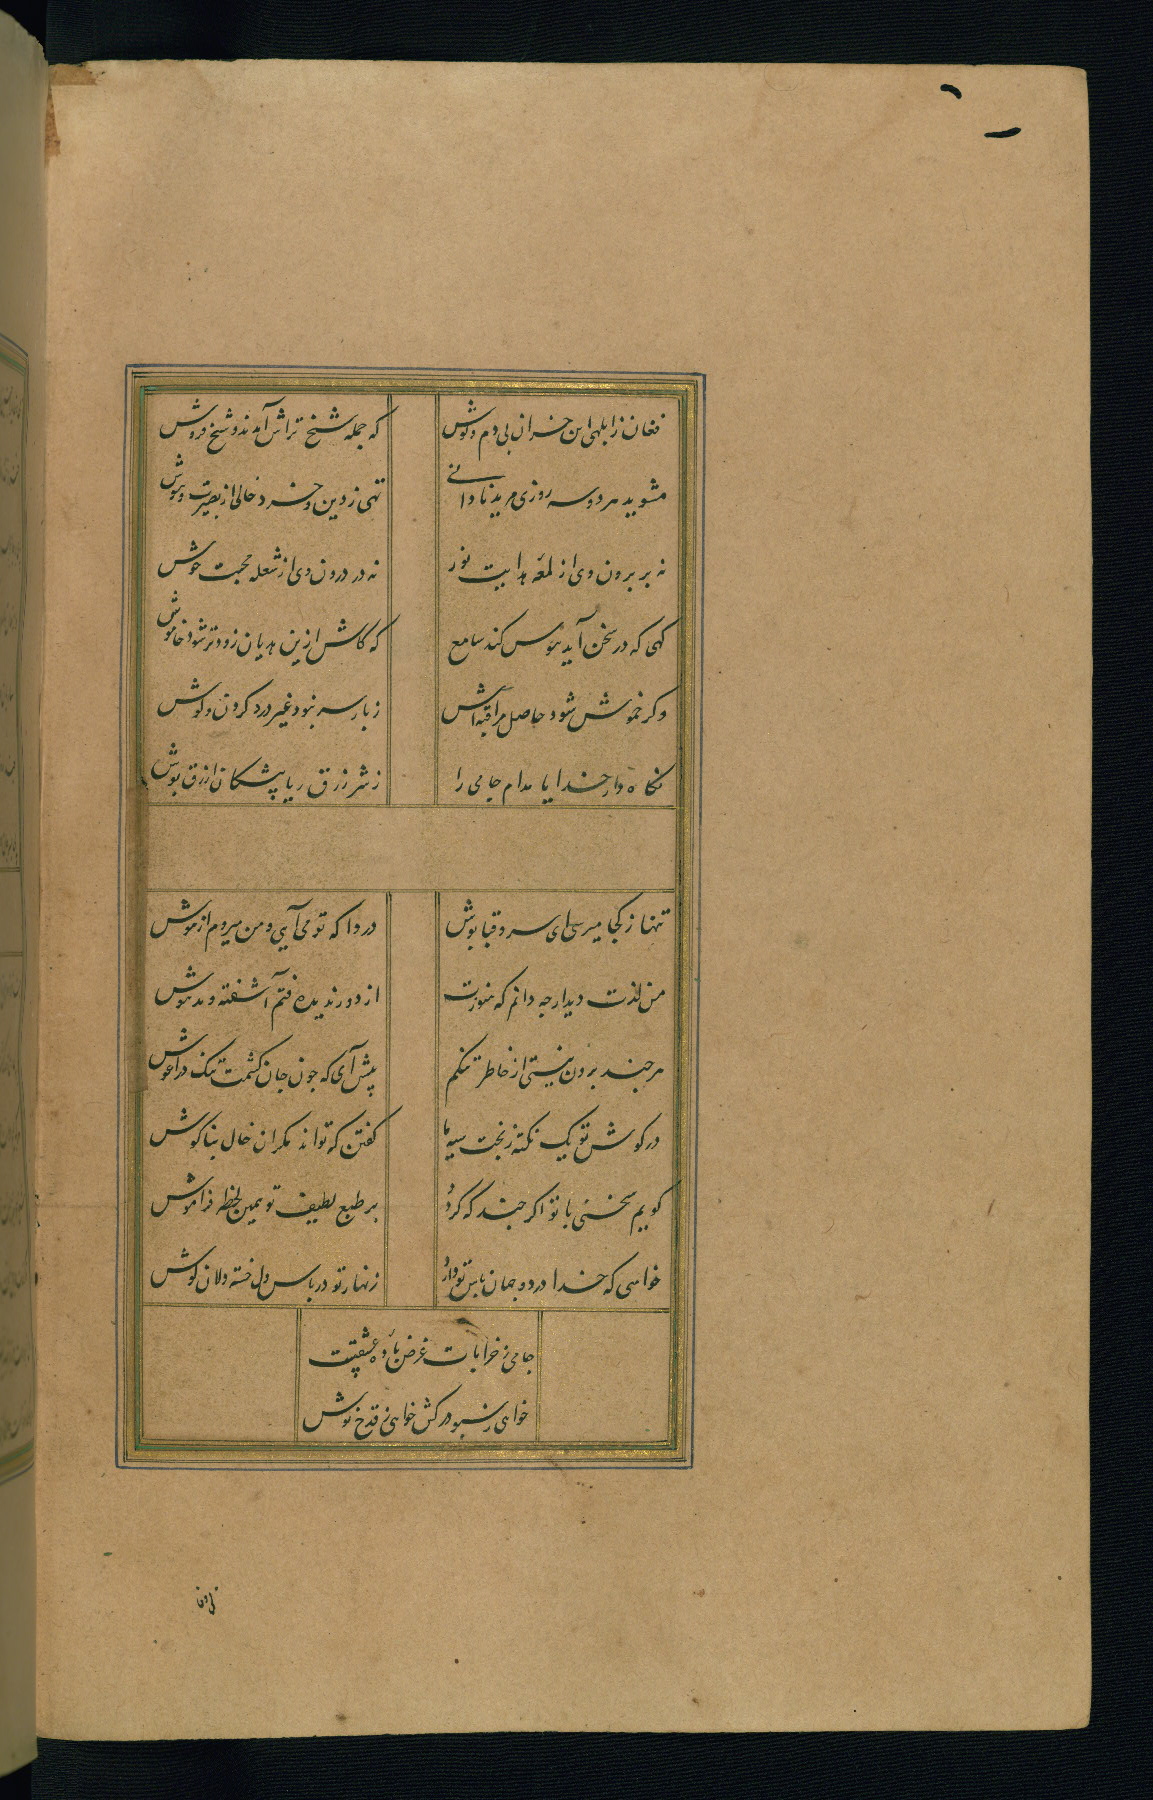 فغان ز ابلهی این خران بی دم و گوش
که جمله شیخ تراش آمدند و شیخ فروش
شوند هر دو سه روزی مرید نادانی
تهی ز دین و خرد خالی از بصیرت و هوش
نه بر برون وی از لمعه هدایت نور
نه در درون وی از شعله محبت جوش
کهی که در سخن آید هوس کند سامع
که کاش ازین هذیان زودتر شود خاموش
وکر خموش شود حاصل مراقبه اش
ز بار سر نبود غیر درد کردن و دوش
نکاه دار خدایا مدام جامی را
ز شر زرق ریا پیشکان ازرق پوش
تنها ز کجا میرسی ای سرو قبا پوش
دردا که تو می آیی و من میروم از هوش
من لذت دیدار چه دانم که هنوزت
از دور ندیده فتم آشفته و مدهوش
هر چند برون نیستی از خاطر تنکم
پیش آی که چون جان کشمت تنک در آغوش
در کوش تو یک نکته ز بخت سیه ما
کفتن که تواند مکر آن خال بناکوش
کویم سخنی با تو اکر چند که کردد
بر طبع لطیف تو همین لحظه فراموش
خواهی که خدا در دو جهان پاس تو دارد
زنهار تو در پاس دل خسته دلان کوش
جامی ز خرابات غرض باده عشقست
خواهی ز سبو درکش و خواهی ز قدح نوش